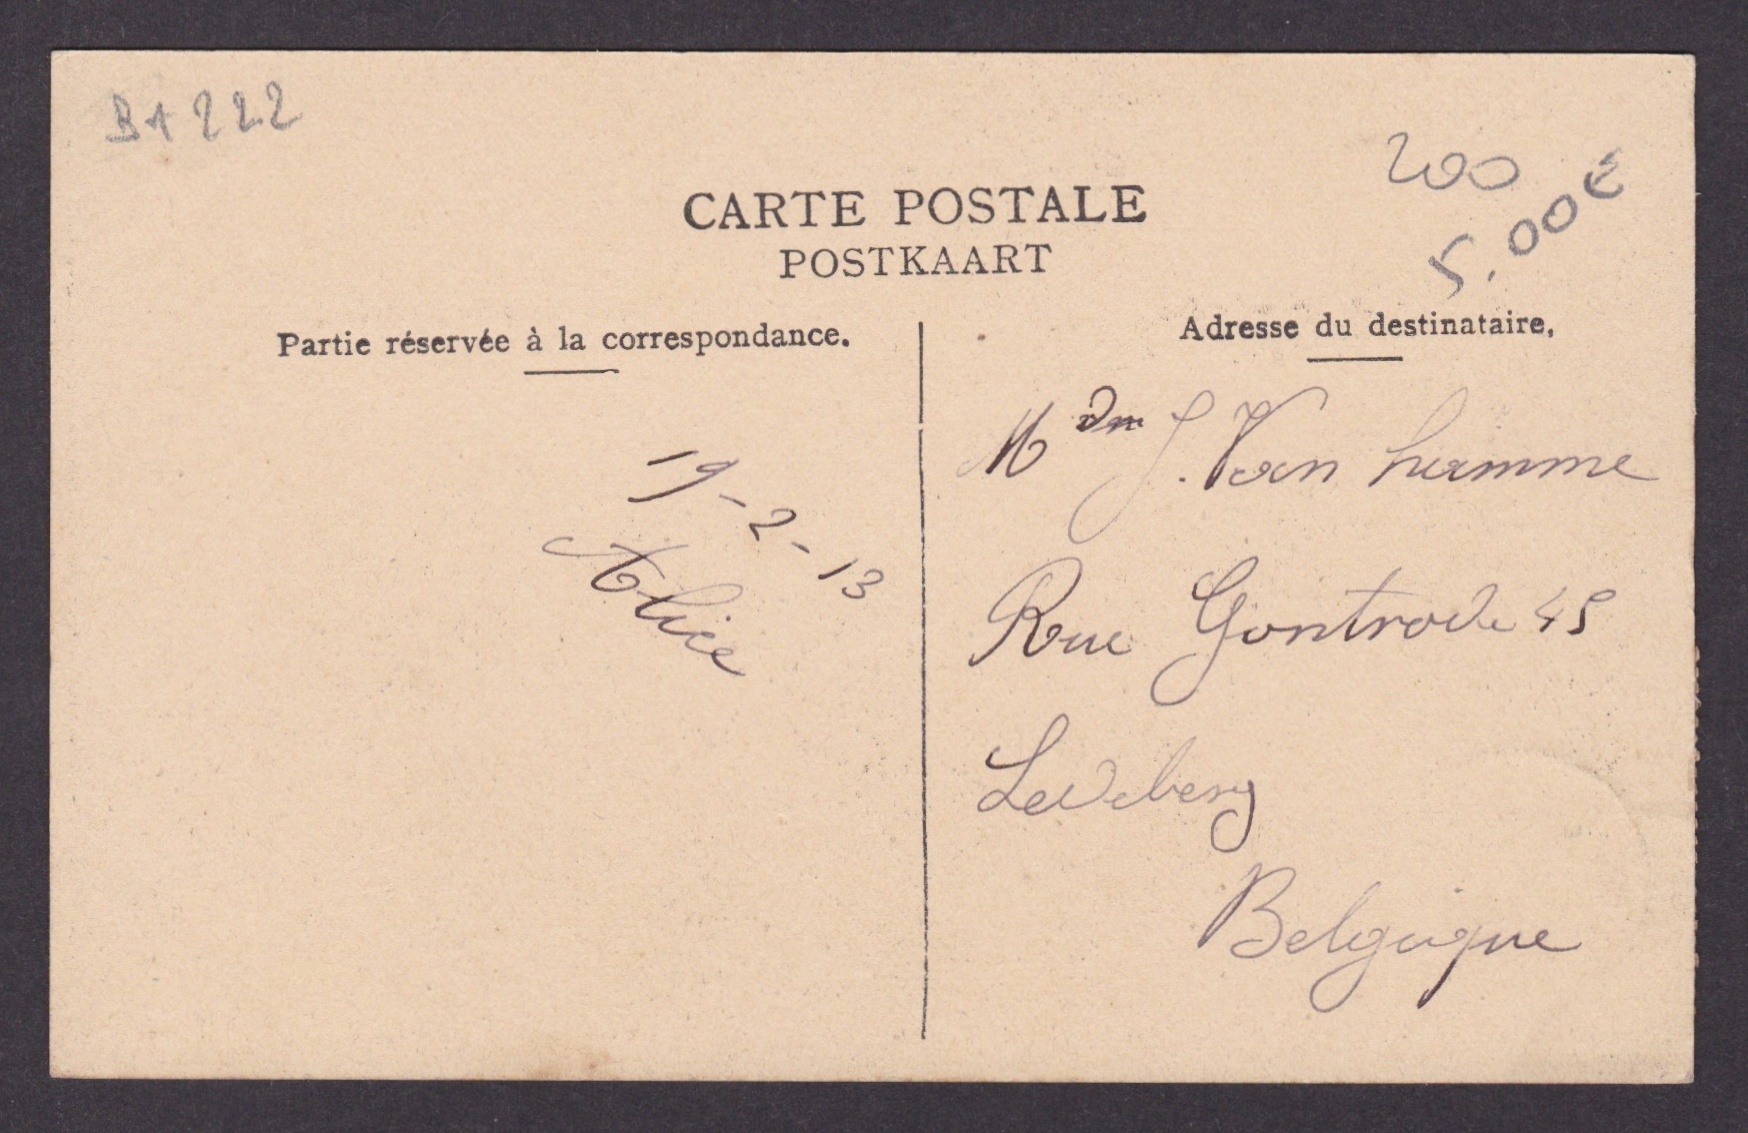 B1222
200
5.00€
CARTE POSTALE
POSTKAART
Partie réservée à la correspondance.
19-2-13
Alice
Adresse du destinataire,
Mdm J. Van hamme
Rue Gontrode 45
Ledeberg
Belgique